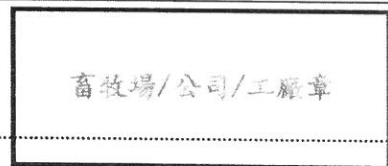 畜牧場/公司/工廠章